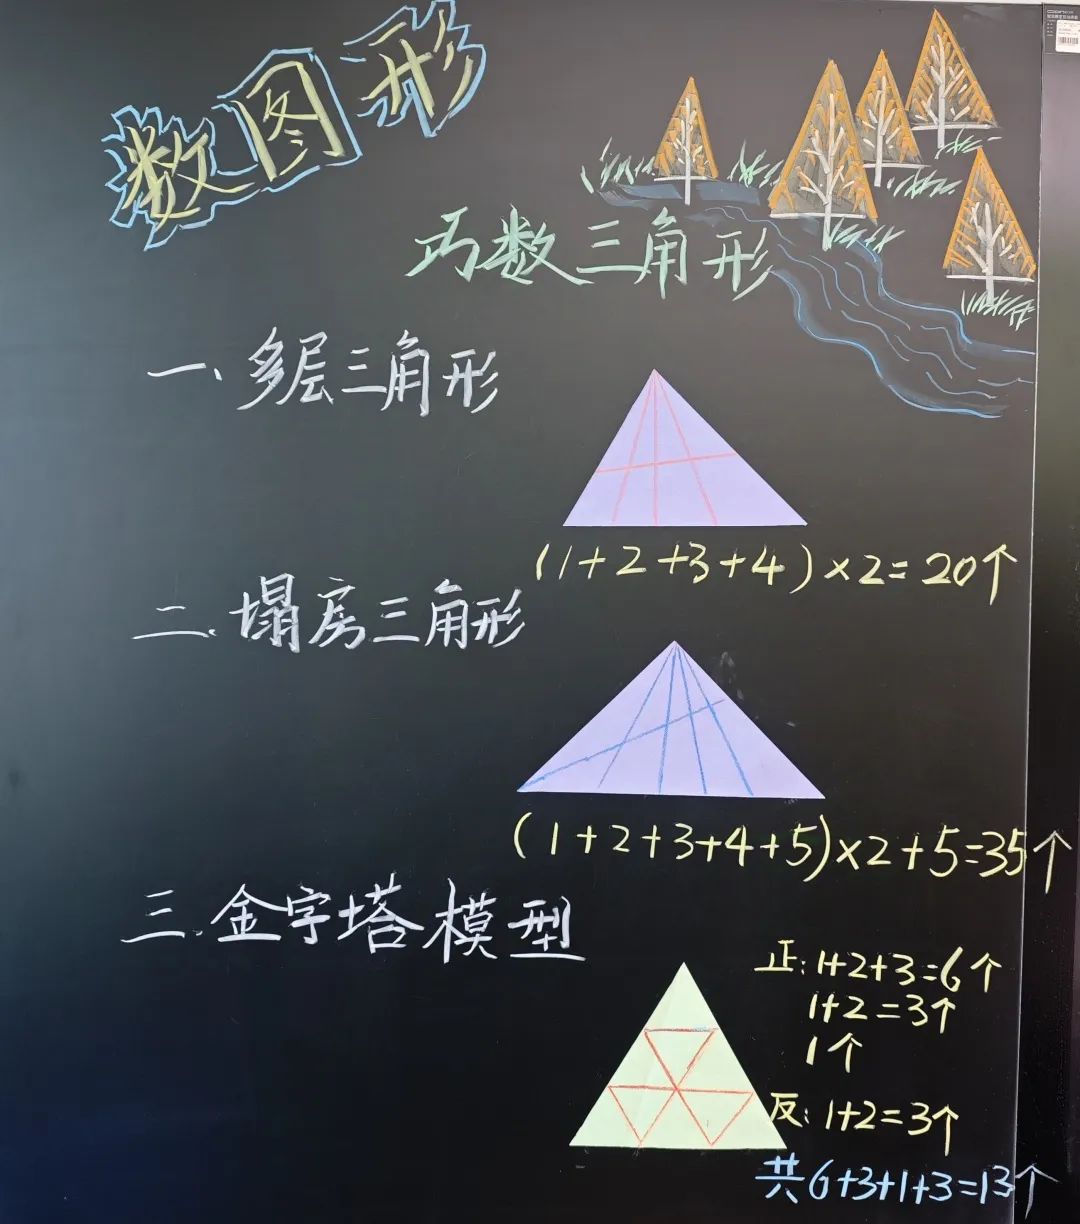 数图形
巧数三角形
一、多层三角形
(1+2+3+4)×2=20个
二、塌房三角形
(1+2+3+4+5)×2+5=35个
三、金字塔模型
正:1+2+3=6个
1+2=3个
1个
反:1+2=3个
共6+3+1+3=13个